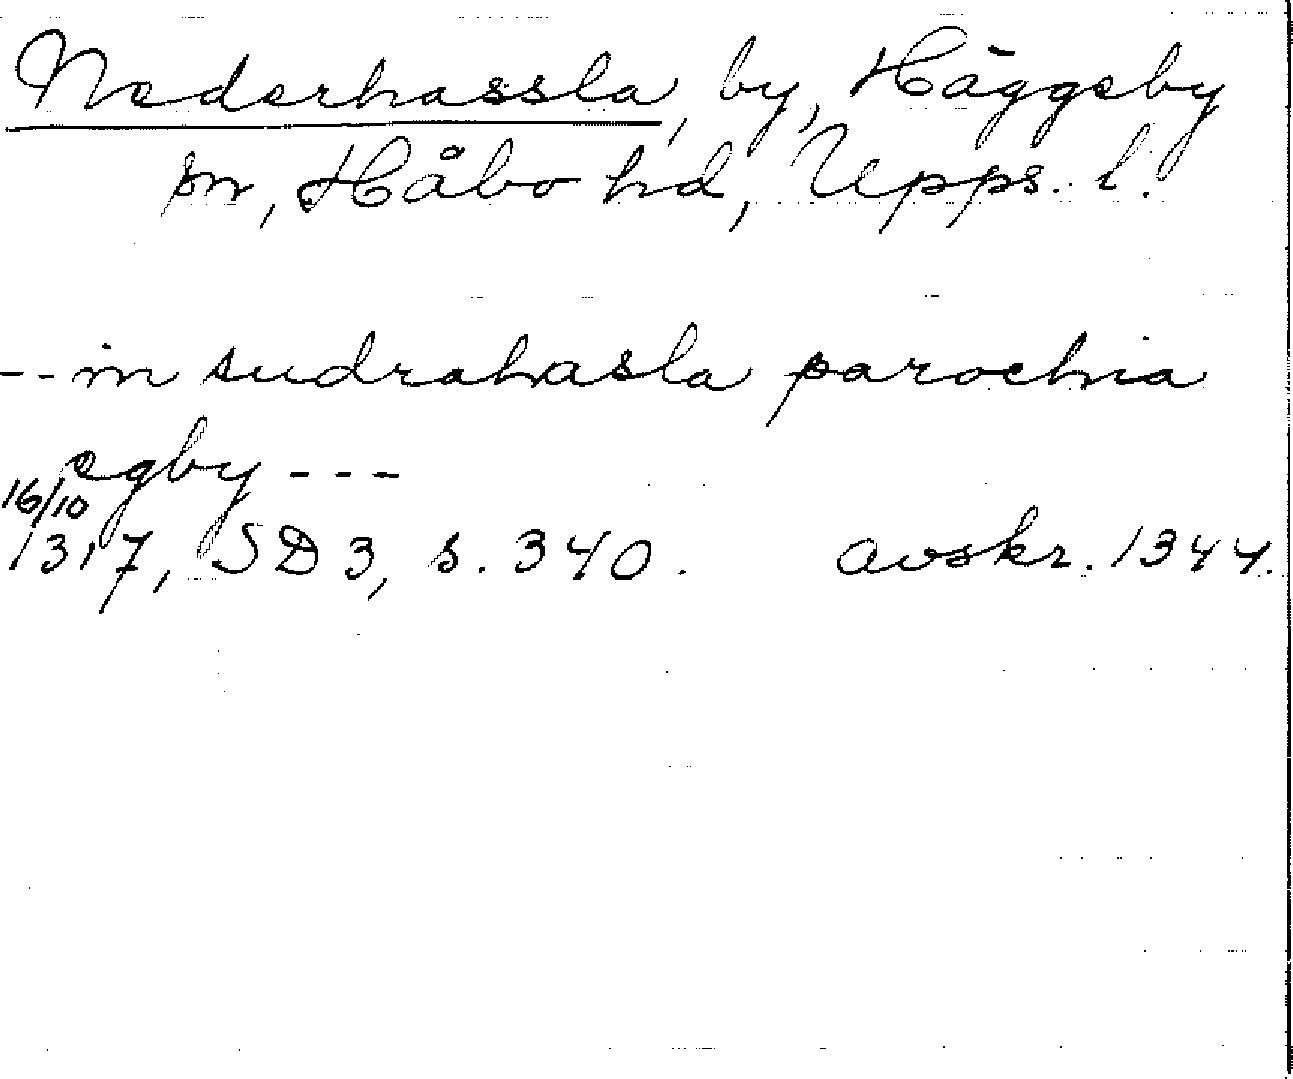 Nederhassla, by, Häggeby
sn, Håbo hd, Upps. l.
-- in sudrahasla parochia
egby ---
16/10
1317, SD 3, s. 340. avskr. 1344.